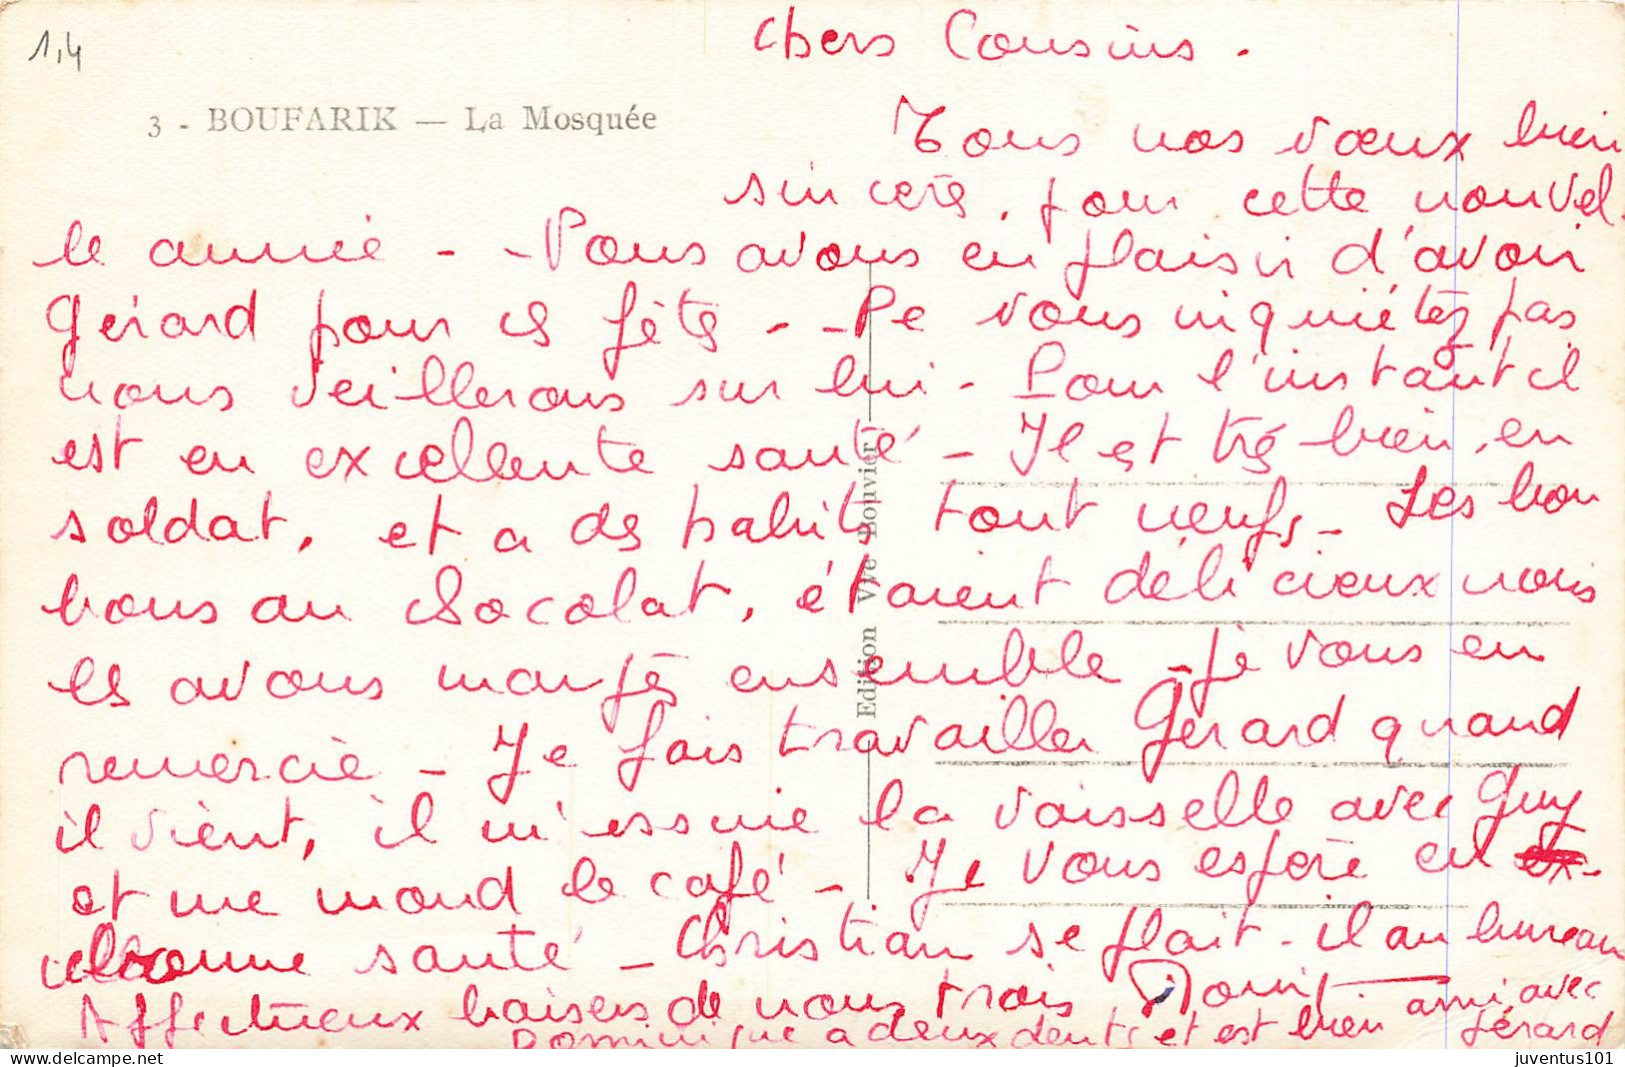 1,4
3 - BOUFARIK — La Mosquée
Edition Vve Bouvier
Chers Cousins.
Tous nos vœux bien
sincère, pour cette nouvel-
le année - - Nous avons eu plaisir d'avoir
Gérard pour ces fêtes - - Ne vous inquiétez pas
nous veillerons sur lui - Pour l'instant il
est en excellente santé - Il est très bien, en
soldat, et a des habits tout neufs - Les bon
bons au chocolat, étaient délicieux nous
les avons mangés ensemble - Je vous en
remercie - Je fais travailler Gérard quand
il vient, il m'essuie la vaisselle avec Guy
et me moud le café - Je vous espère en
santé - Christian se plait - il au bureau
Affectueux baisers de nous trois
ami avec
Dominique a deux dents et est bien Gérard
juventus101